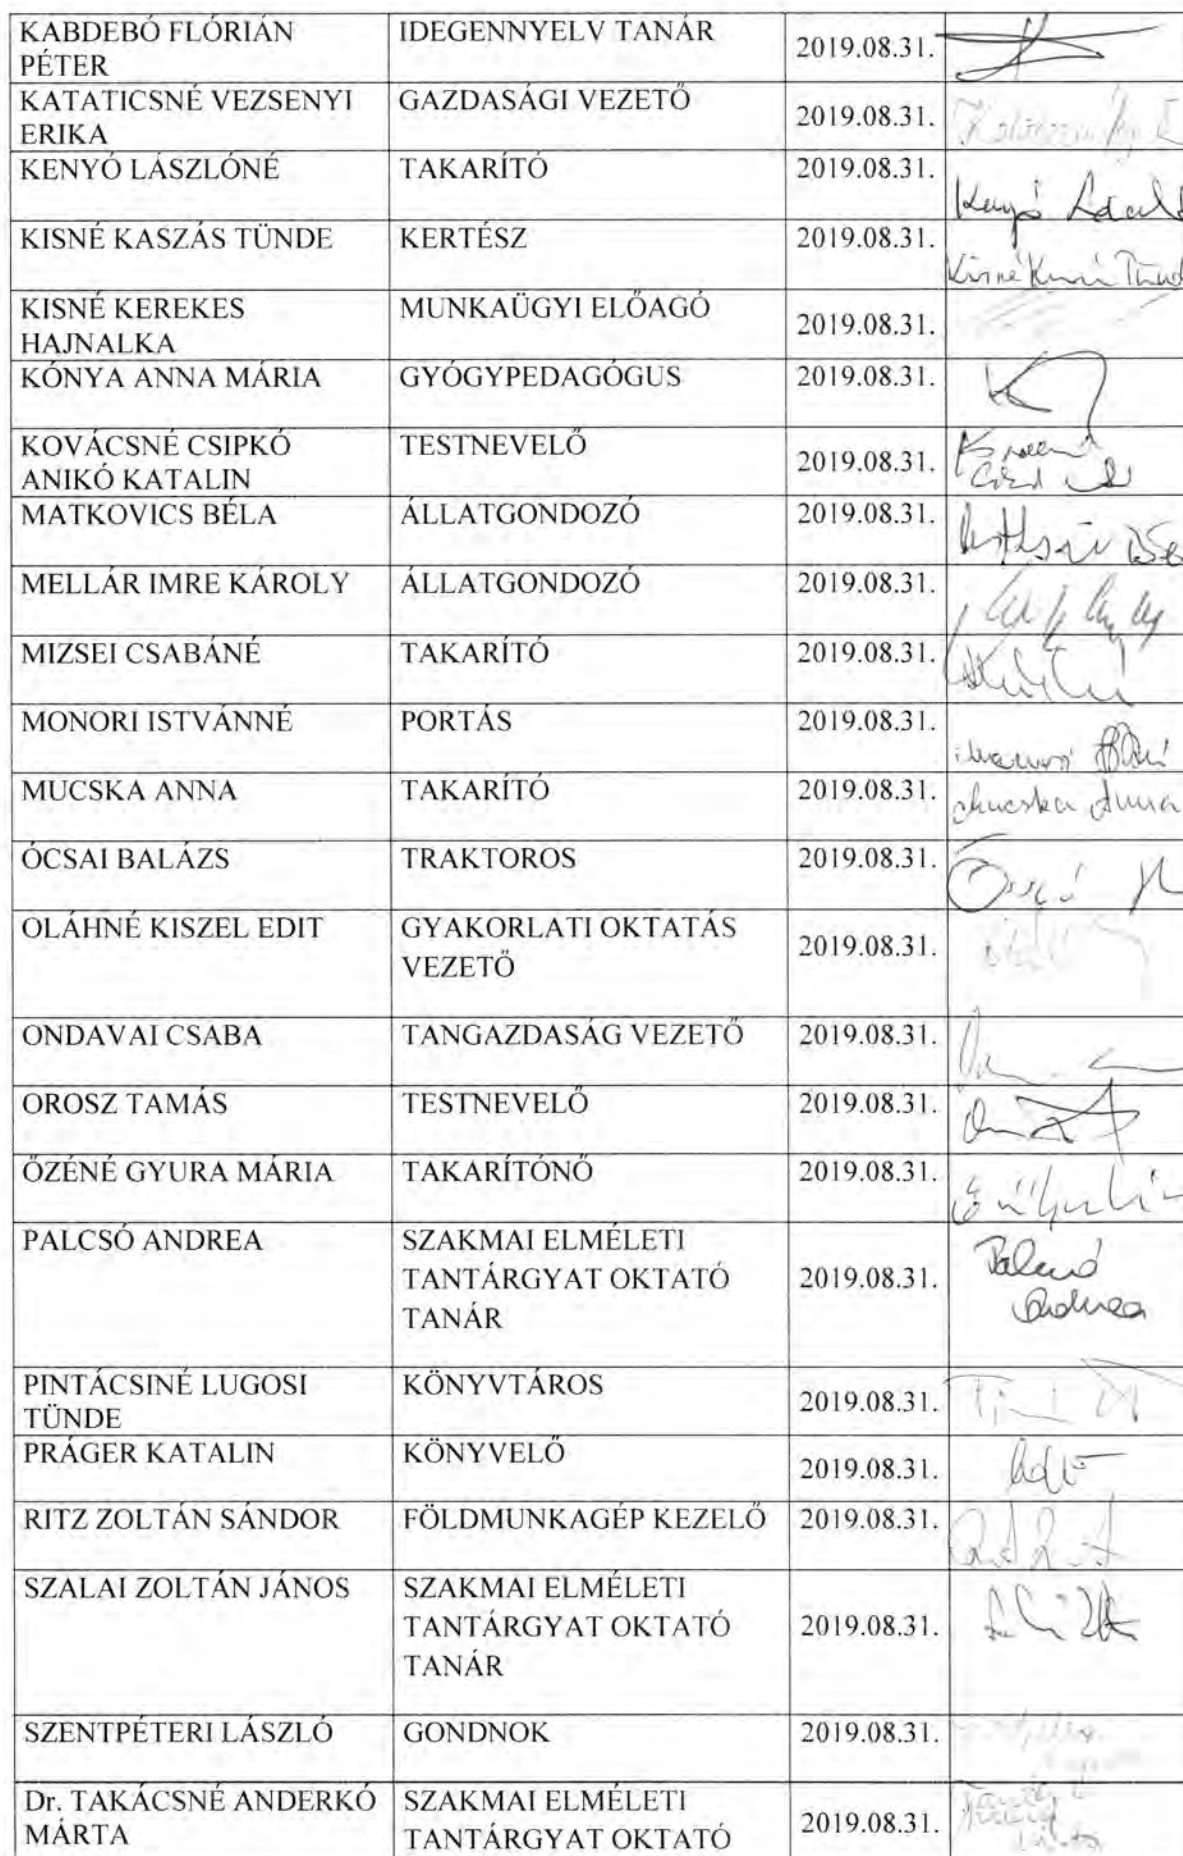 KABDEBÓ FLÓRIÁN IDEGENNYELV TANÁR 2019.08.31.
PÉTER
KATATICSNÉ VEZSENYI GAZDASÁGI VEZETŐ 2019.08.31.
ERIKA
KENYÓ LÁSZLÓNÉ TAKARÍTÓ 2019.08.31.
KISNÉ KASZÁS TÜNDE KERTÉSZ 2019.08.31.
KISNÉ KEREKES MUNKAÜGYI ELŐAGÓ 2019.08.31.
HAJNALKA
KÓNYA ANNA MÁRIA GYÓGYPEDAGÓGUS 2019.08.31.
KOVÁCSNÉ CSIPKÓ TESTNEVELŐ 2019.08.31.
ANIKÓ KATALIN
MATKOVICS BÉLA ÁLLATGONDOZÓ 2019.08.31.
MELLÁR IMRE KÁROLY ÁLLATGONDOZÓ 2019.08.31.
MIZSEI CSABÁNÉ TAKARÍTÓ 2019.08.31.
MONORI ISTVÁNNÉ PORTÁS 2019.08.31.
MUCSKA ANNA TAKARÍTÓ 2019.08.31. Mucska Anna
ÓCSAI BALÁZS TRAKTOROS 2019.08.31.
OLÁHNÉ KISZEL EDIT GYAKORLATI OKTATÁS 2019.08.31.
VEZETŐ
ONDAVAI CSABA TANGAZDASÁG VEZETŐ 2019.08.31.
OROSZ TAMÁS TESTNEVELŐ 2019.08.31.
ŐZÉNÉ GYURA MÁRIA TAKARÍTÓNŐ 2019.08.31.
PALCSÓ ANDREA SZAKMAI ELMÉLETI Palcsó
TANTÁRGYAT OKTATÓ 2019.08.31. Andrea
TANÁR
PINTÁCSINÉ LUGOSI KÖNYVTÁROS 2019.08.31.
TÜNDE
PRÁGER KATALIN KÖNYVELŐ 2019.08.31.
RITZ ZOLTÁN SÁNDOR FÖLDMUNKAGÉP KEZELŐ 2019.08.31.
SZALAI ZOLTÁN JÁNOS SZAKMAI ELMÉLETI
TANTÁRGYAT OKTATÓ 2019.08.31.
TANÁR
SZENTPÉTERI LÁSZLÓ GONDNOK 2019.08.31.
Dr. TAKÁCSNÉ ANDERKÓ SZAKMAI ELMÉLETI 2019.08.31.
MÁRTA TANTÁRGYAT OKTATÓ